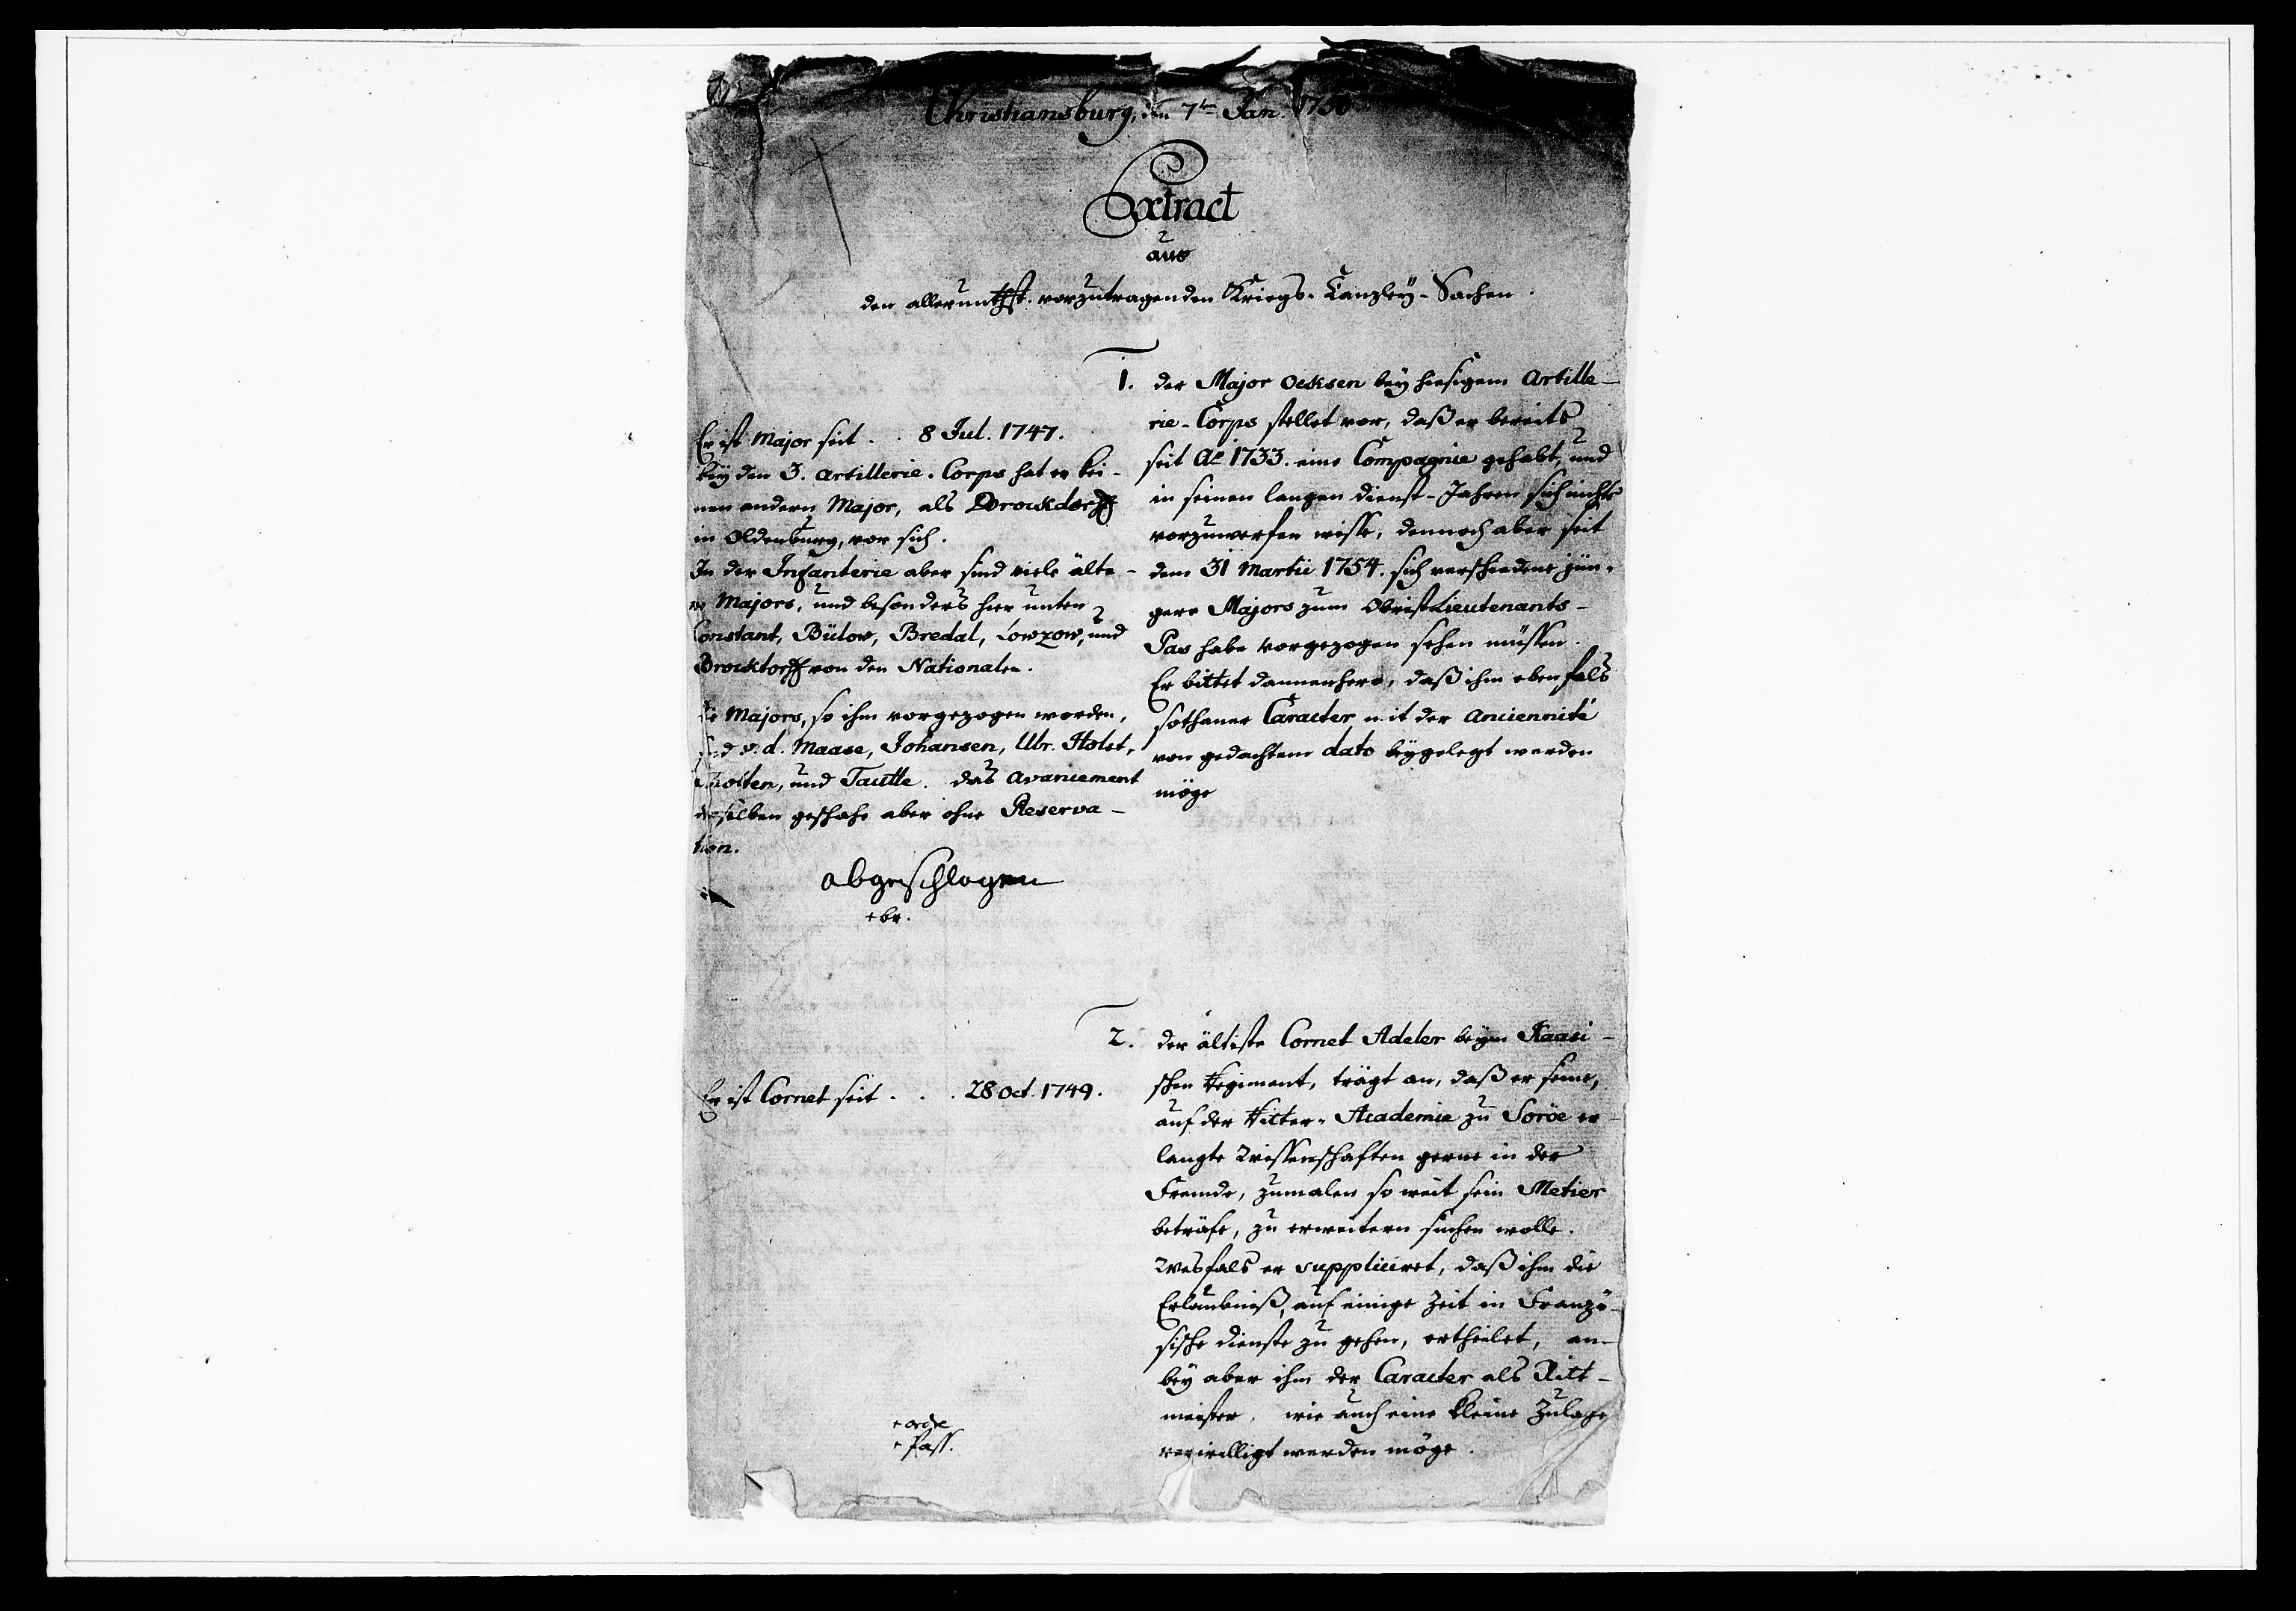 Christiansburg, den 7ten Jan.
Extract
aus
den allerunthst. vorzutragenden Kriegs-Canzley-Sachen.
1. Der Major Ocksen bey hiesigem Artille-
rie-Corps stellet vor, daß er bereits
seit Ao 1733. eine Compagnie gehabt, und
in seinen langen Dienst-Jahren sich nichts
vorzuwerfen wisse, dennoch aber seit
dem 31 Martii 1754. sich verschiedene jün-
gere Majors zum ObristLieutenants-
Pas habe vorgezogen sehen müssen.
Er bittet dannenhero, daß ihm ebenfals
sothaner Caracter mit der Anciennité
von gedachtem dato beygelegt werden
möge
Er ist Major seit . . 8 Jul. 1747.
Bey den 3. Artillerie-Corps hat er kei-
nen andern Major, als Brockdorff
in Oldenburg, vor sich.
In der Infanterie aber sind viele älte-
re Majors, und besonders hier unten
Constant, Bülow, Bredal, Lowzow, und
Brocktorff von den Nationalen.
Die Majors, so ihm vorgezogen worden,
sind v. d. Maase, Johansen, Ulr. Holst,
und Tautte. Das Avancement
derselben geschahe aber ohne Reserva-
tion.
abgeschlagen
+ br.
2. Der älteste Cornet Adeler beym Kaasi-
schen Regiment, trägt an, daß er seine,
auf der Ritter-Academie zu Soröe er-
langte Wissenschaften gerne in der
Fremde, zumalen so weit sein Metier
beträfe, zu erweitern suchen wolle.
Wesfals er suppliciret, daß ihm die
Erlaubniß, auf einige Zeit in Franzö-
sische Dienste zu gehen, ertheilet, an-
bey aber ihm der Caracter als Ritt-
meister, wie auch eine kleine Zulage
verwilligt werden möge.
Er ist Cornet seit . . . 28 Oct. 1749.
+ ordre
+ Pass.